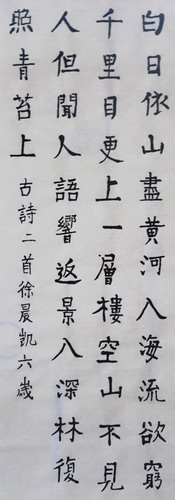 白日依山盡黃河入海流欲窮
千里目更上一層樓空山不見
人但聞人語響返景入深林復
照青苔上
古詩二首徐晨凱六歲